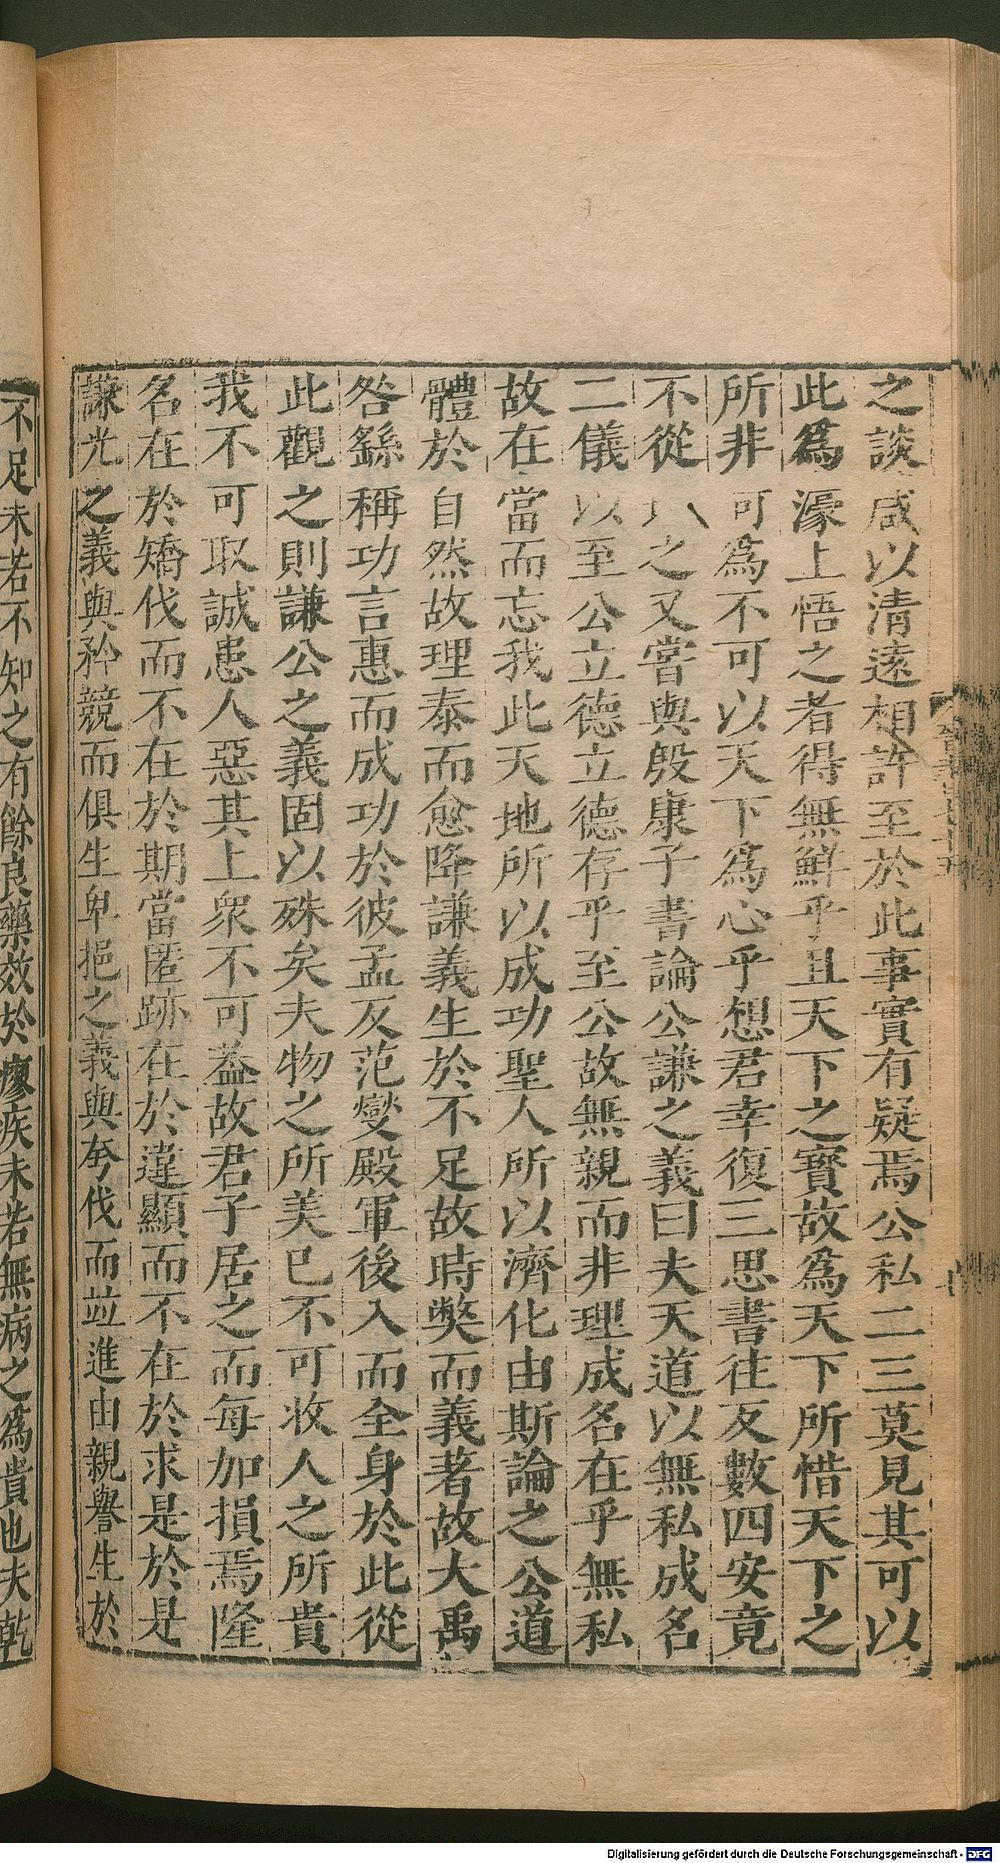 之談咸以清遠相許至於此事實有疑焉公私二三莫見其可以
此爲濠上悟之者得無鮮乎且天下之寳故爲天下所惜天下之
所非可爲不可以天下爲心乎想君幸復三思書往反數四安竟
不從之又嘗與殷康子書論公謙之義曰夫天道以無私成名
二儀以至公立德立德存乎至公故無親而非理成名在乎無私
故在當而忘我此天地所以成功聖人所以濟化由斯論之公道
體於自然故理泰而愈降謙義生於不足故時獘而義著故大禹
咎繇稱功言惠而成功於彼孟反范燮殿軍後入而全身於此從
此觀之則謙公之義固以殊矣夫物之所美已不可收人之所貴
我不可取誠患人惡其上衆不可葢故君子居之而每加損焉隆
名在於矯伐而不在於期當匿跡在於違顯而不在於求是於是
謙光之義與矜競而俱生卑挹之義與夸伐而竝進由親譽生於
不足未若不知之有餘良藥效於瘳疾未若無病之爲貴也夫乾
Digitalisierung gefördert durch die Deutsche Forschungsgemeinschaft - DFG